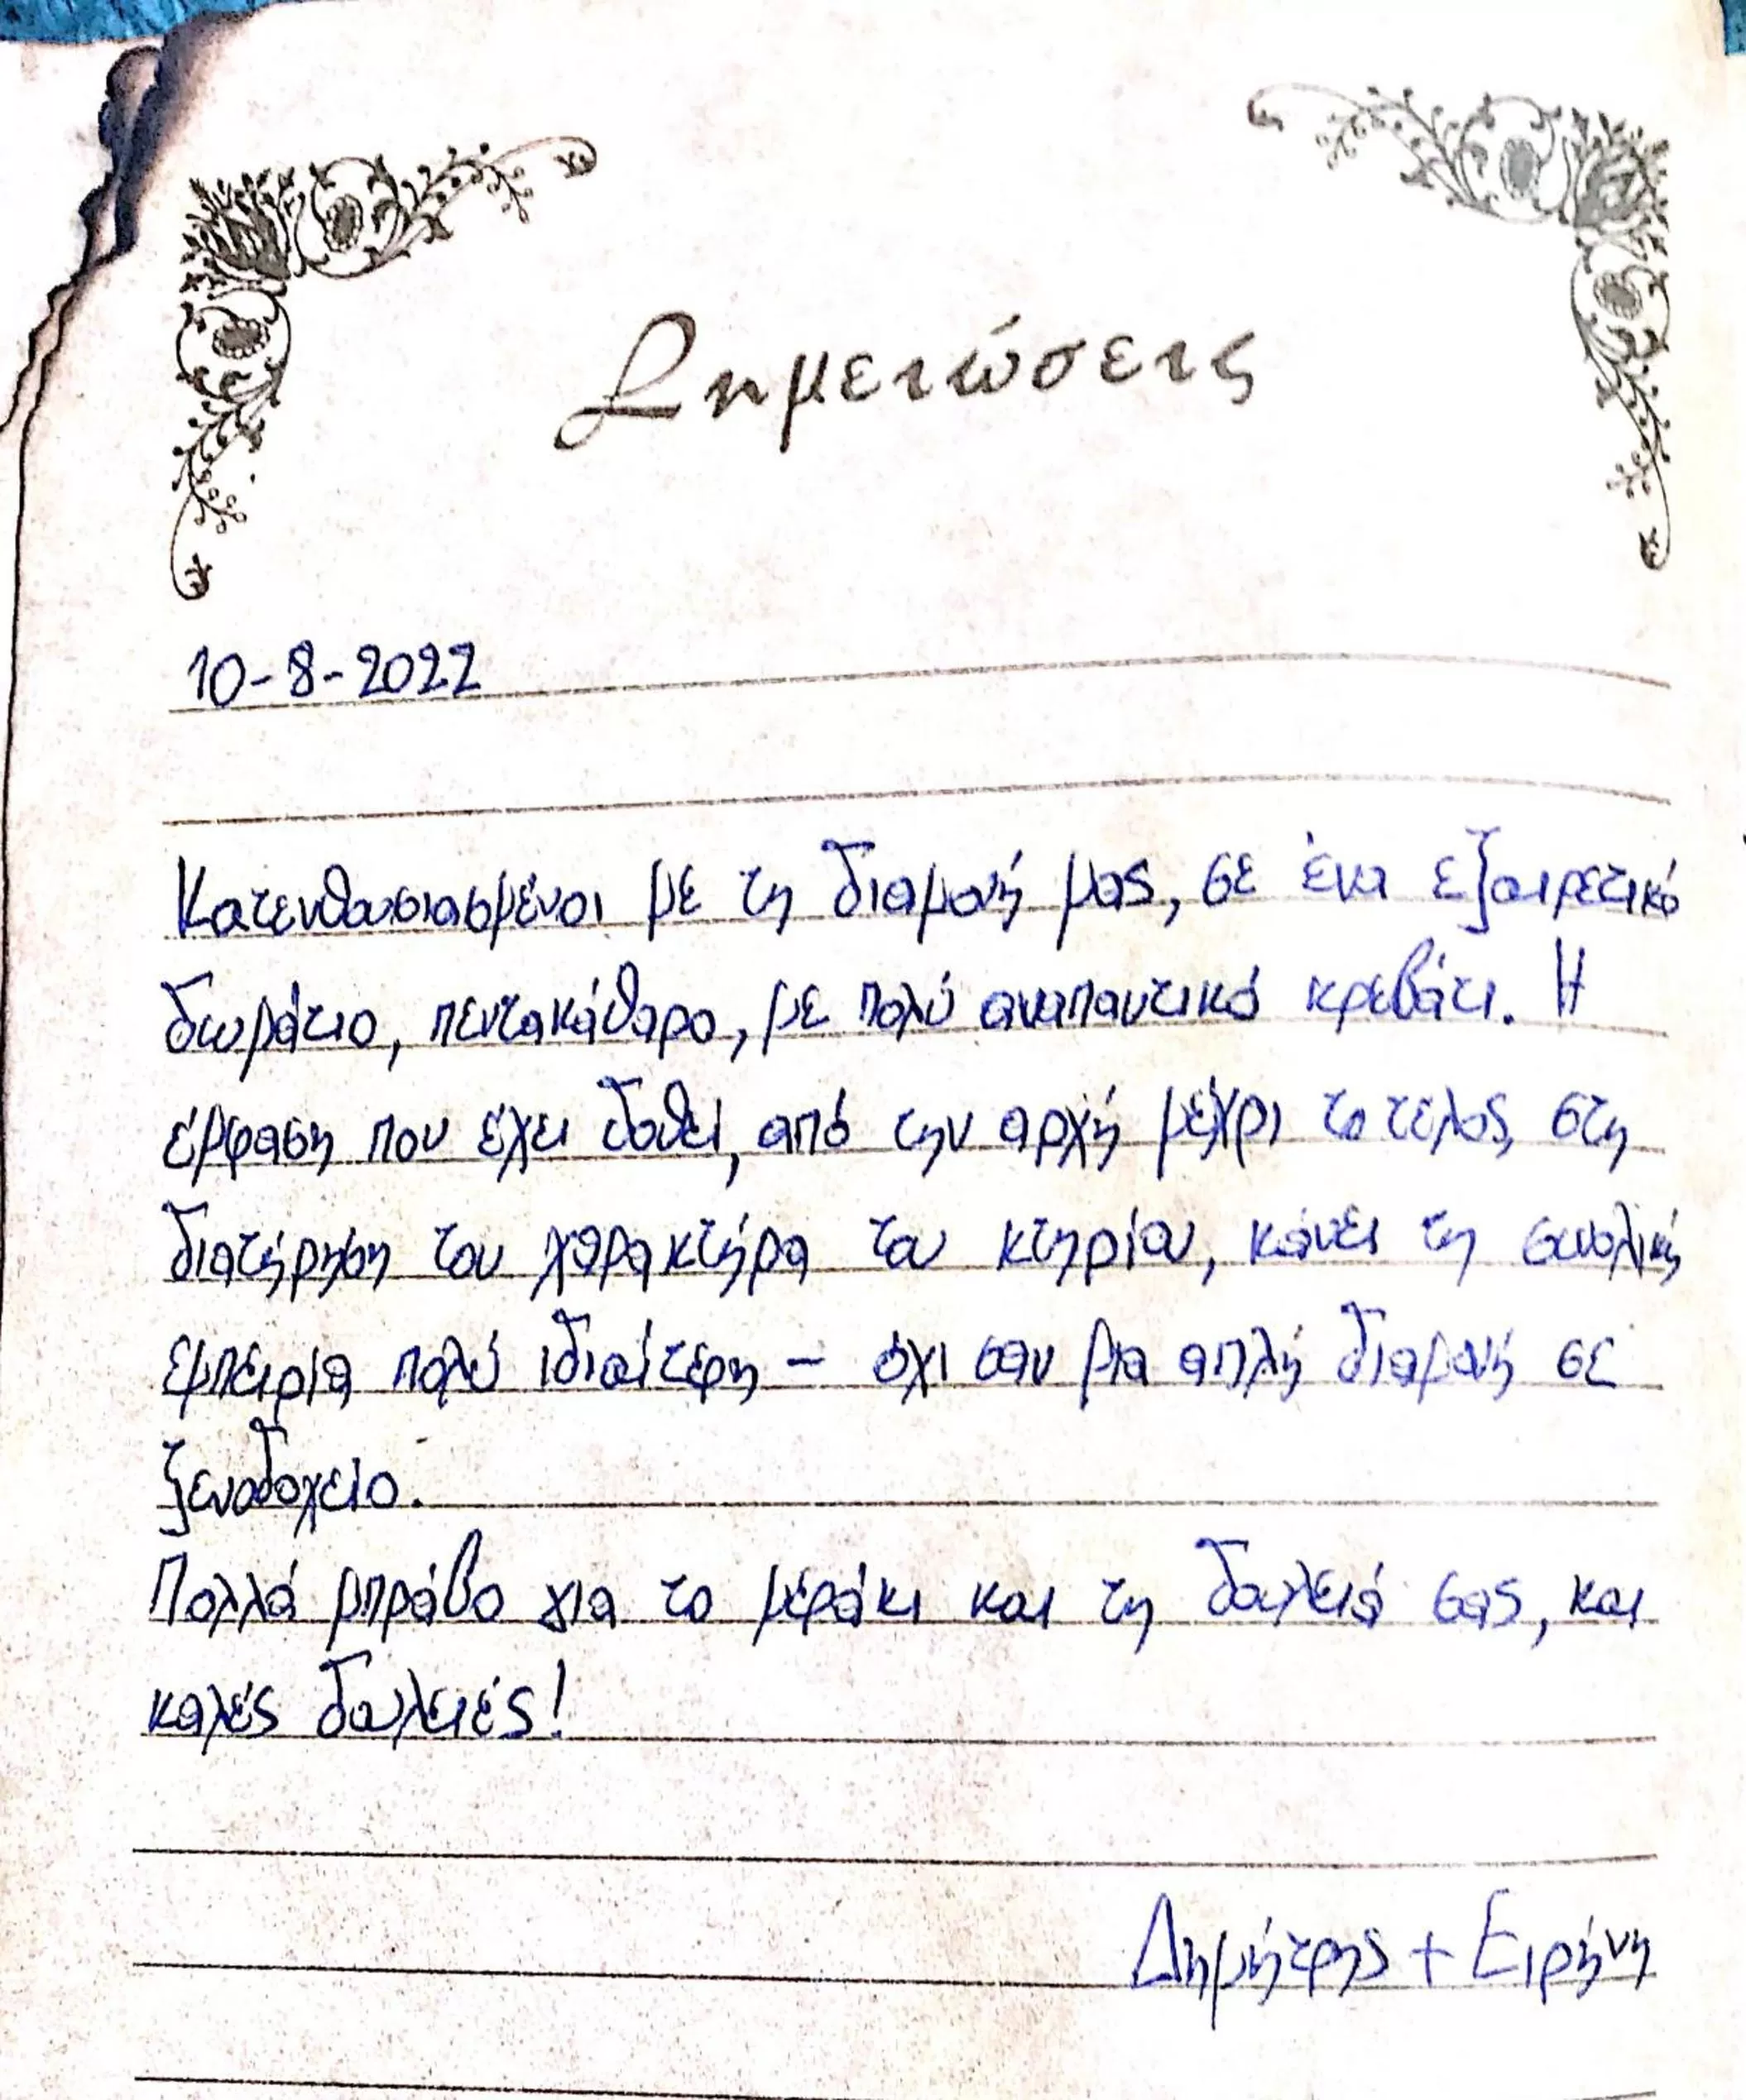 Σημειώσεις
10-8-2022
Κατενθουσιασμένοι με τη διαμονή μας, σε ένα εξαιρετικό
δωμάτιο, πεντακάθαρο, με πολύ αναπαυτικό κρεβάτι. Η
έμφαση που έχει δοθεί, από την αρχή μέχρι το τέλος, στη
διατήρηση του χαρακτήρα του κτηρίου, κάνει τη συνολική
εμπειρία πολύ ιδιαίτερη - όχι σαν μια απλή διαμονή σε
ξενοδοχείο.
Πολλά μπράβο για το μεράκι και τη δουλειά σας, και
καλές δουλειές!
Δημήτρης + Ειρήνη